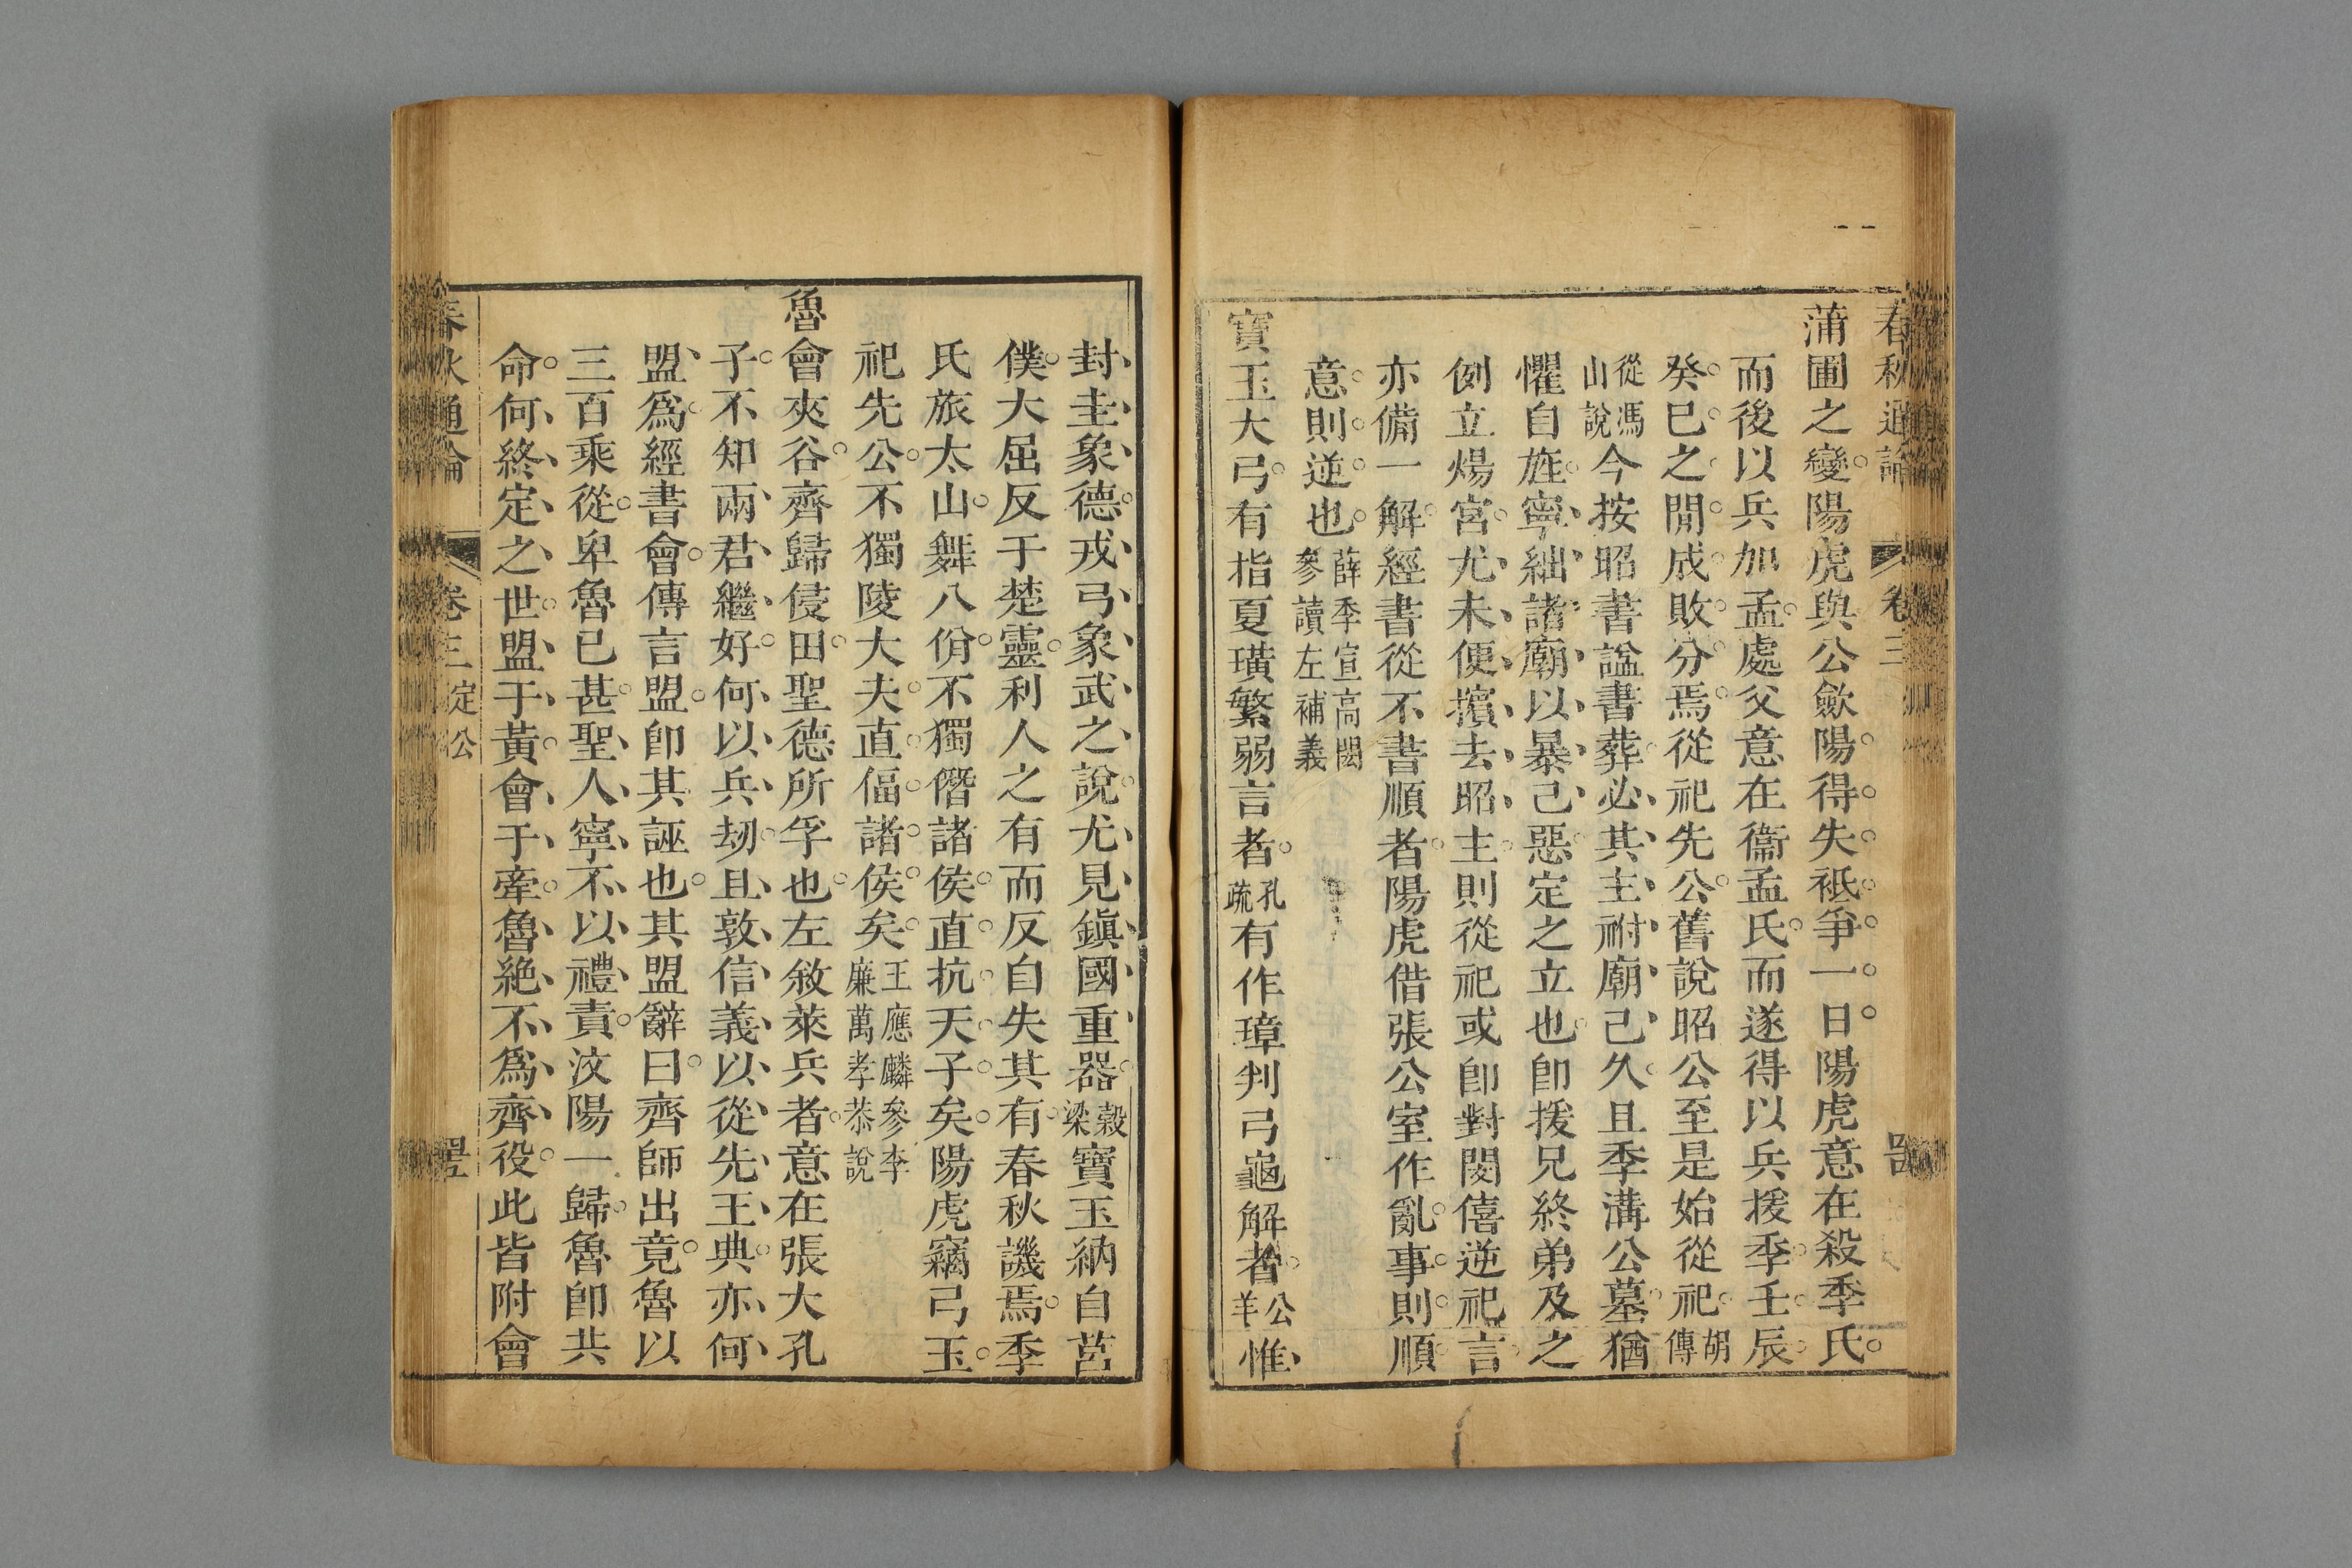 春秋通論 卷三
蒲圃之變陽虎與公歛陽得失袛爭一日陽虎意在殺季氏
而後以兵加孟處父意在衞孟氏而遂得以兵援季壬辰
癸巳之閒成敗分焉從祀先公舊說昭公至是始從祀胡傳
從馮山說今按昭書諡書葬必其主祔廟己久且季溝公墓猶
懼自旌寧絀諸廟以暴己惡定之立也卽援兄終弟及之
例立煬宮尤未便擯去昭主則從祀或卽對閔僖逆祀言
亦備一解經書從不書順者陽虎借張公室作亂事則順
意則逆也薛季宣高閌參讀左補義
寶玉大弓有指夏璜繁弱言者孔疏有作璋判弓龜解者公羊惟
封圭象德戎弓象武之說尤見鎭國重器穀梁寶玉納自莒
僕大屈反于楚靈利人之有而反自失其有春秋譏焉季
氏旅太山舞八佾不獨僭諸侯直抗天子矣陽虎竊弓玉
祀先公不獨陵大夫直偪諸侯矣王應麟參李廉萬孝恭說
魯會夾谷齊歸侵田聖德所孚也左敘萊兵者意在張大孔
子不知兩君繼好何以兵刼且敦信義以從先王典亦何
盟爲經書會傳言盟卽其誣也其盟辭曰齊師出竟魯以
三百乘從卑魯已甚聖人寧不以禮責汶陽一歸魯卽共
命何終定之世盟于黃會于牽魯絶不爲齊役此皆附會
春秋通論 卷三 定公